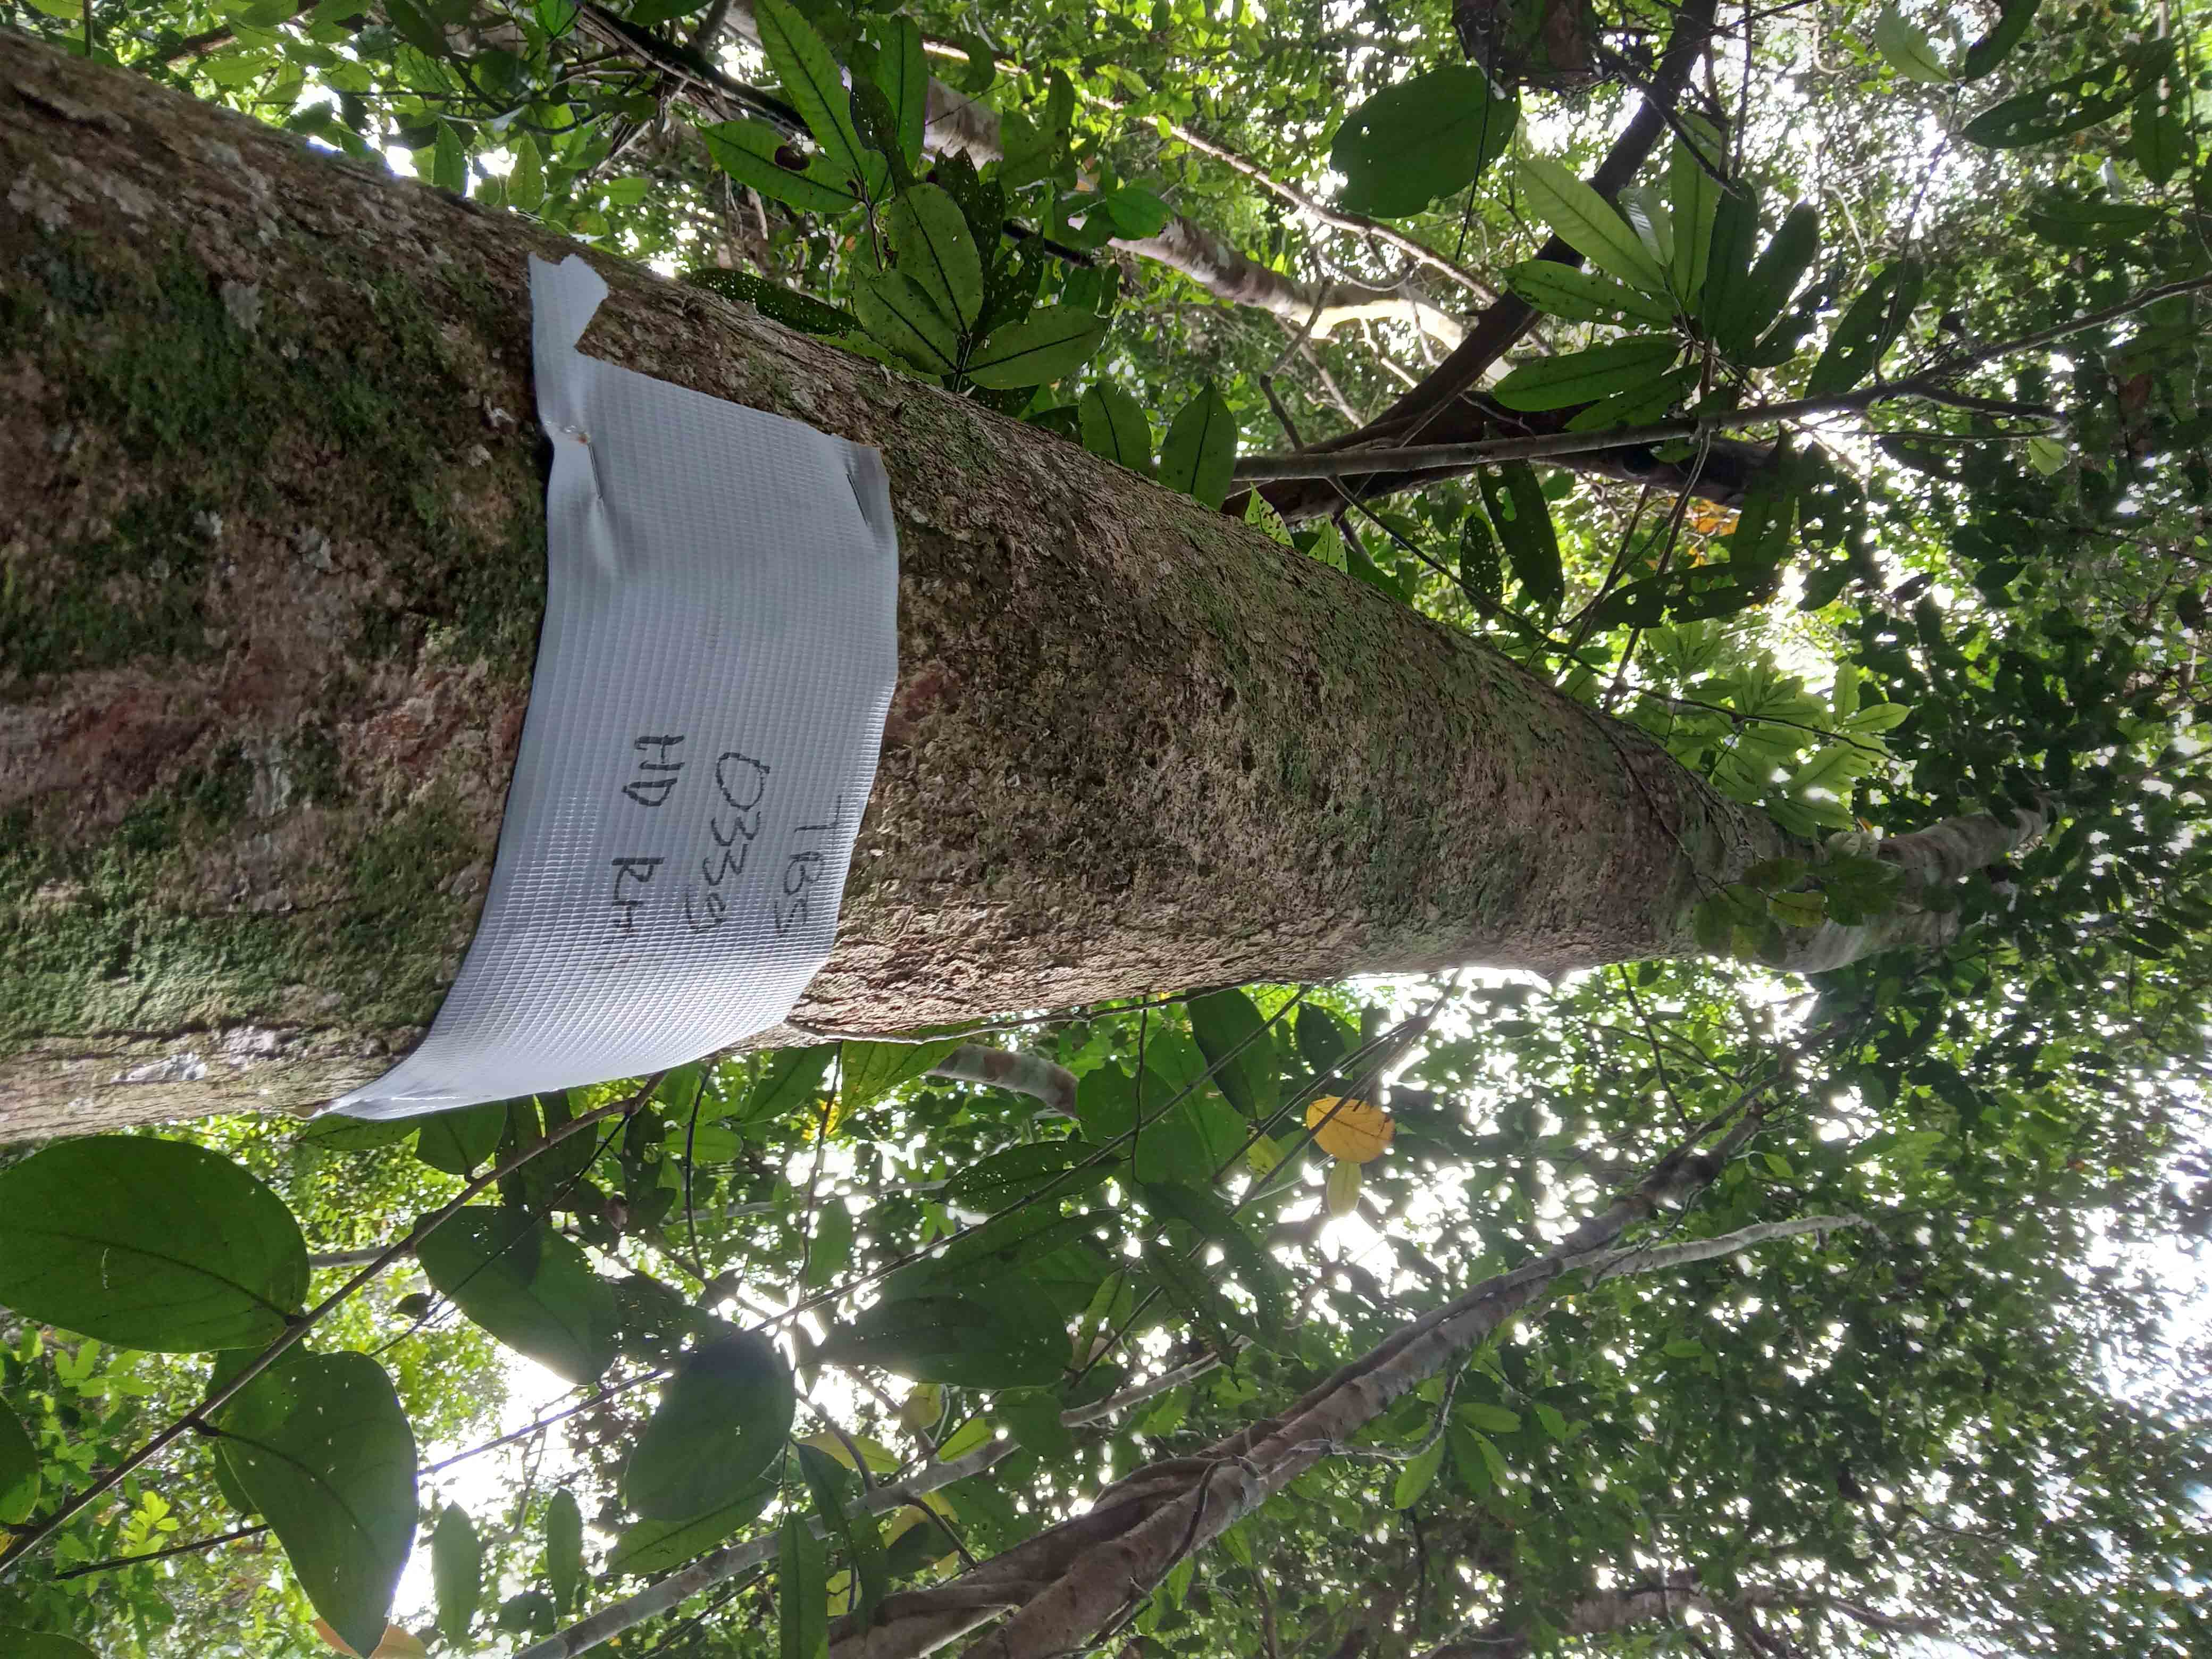 TBS
0339
HD Km